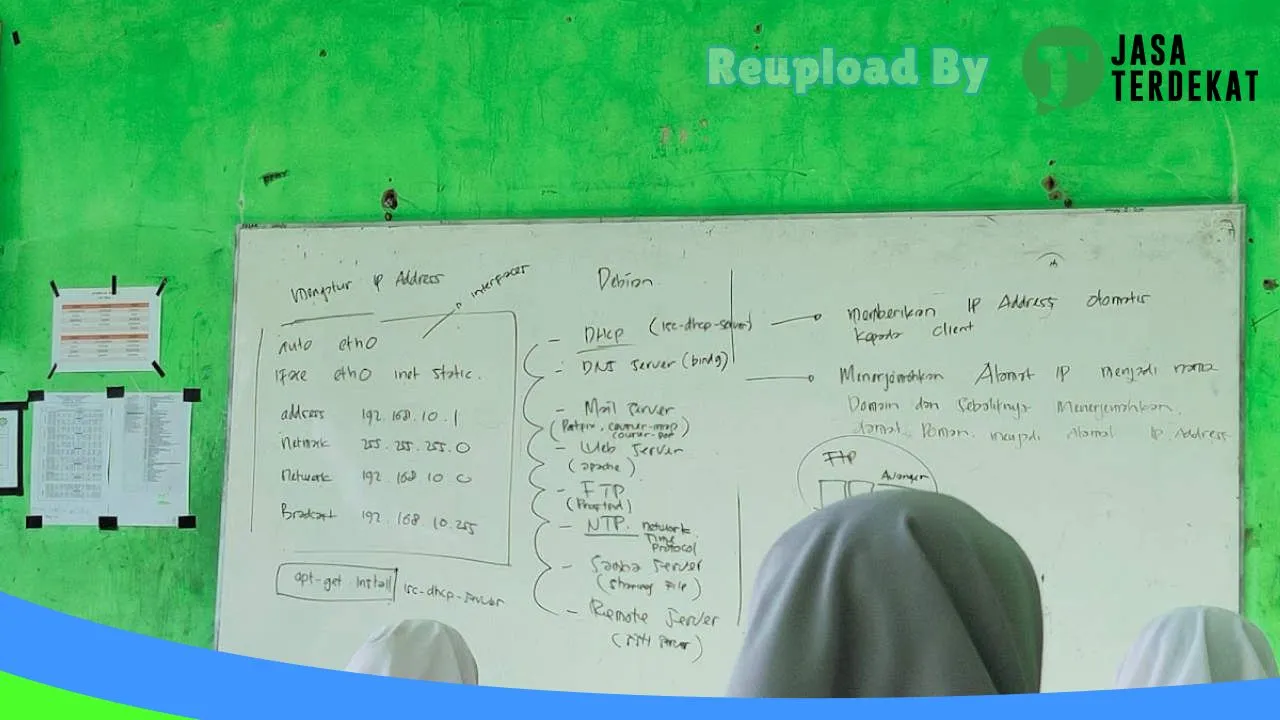 Reupload By
JASA
TERDEKAT
Mengatur IP Address
interfaces
auto eth0
iface eth0 inet static.
address 192.168.10.1
Netmask 255.255.255.0
Network 192.168.10.0
Broadcast 192.168.10.255
apt-get install isc-dhcp-server
Debian
- DHCP (isc-dhcp-server)
- DNS Server (bind9)
- Mail Server
(Postfix, courier-imap,
courier-pop)
- Web Server
(apache)
- FTP
(Proftpd)
- NTP. Network
Time
Protocol
- Samba Server
(Sharing File)
- Remote Server
(SSH Server)
Memberikan IP Address otomatis
kepada client
Menerjemahkan Alamat IP menjadi nama
Domain dan Sebaliknya Menerjemahkan
Domain menjadi Alamat IP Address
FTP